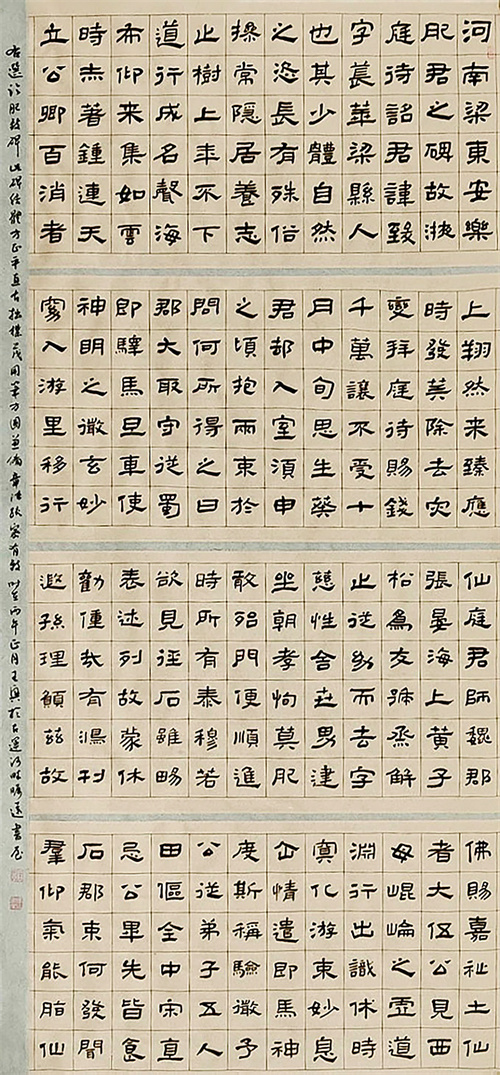 河南梁東安樂
肥君之碑故掖
庭待詔君諱致
字萇華梁縣人
也其少體自然
之恣長有殊俗
操常隱居養志
止樹上年不下
道行成名聲海
布仰來集如雲
時亦著鍾連天
立公卿百消者
上翔然來臻應
時發美除去灾
變拜庭待賜錢
千萬讓不受十
月中旬思生葵
君却入室須申
之頃抱兩束於
問何所得之曰
郡大取守從蜀
即驛馬旦車使
神明之微玄妙
寡入游里移行
仙庭君師魏郡
張晏海上黃子
松為友號烝解
止從幼而去字
慈性舍赤男建
坐朝孝恂莫肥
敢殆門便順進
時所有泰穆若
欲見徑石雖暘
表述列故蒙休
勸僮哉有湯刊
遐孫理顛茲故
佛賜嘉祉土仙
者大伍公見西
母崐崘之虛道
淵行出識休時
寞化游束妙息
仚情遣即馬神
度斯稱驗徽予
公從弟子五人
田傴全中宋直
忌公畢先皆食
石郡束何發聞
羣仰氣能脂仙
右選臨肥致碑此碑結體方正平直古拙樸茂用筆方圓兼備章法疏密有致丙午正月王興於古運河畔書屋